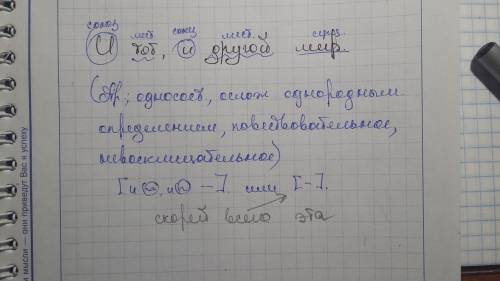 союз мест. союз мест. сущ.
И тот, и другой мир.
(пр.; односост., ослож однородным
определением, повествовательное,
невосклицательное)
[и О, и О —]. или [-].
скорей всего эта
и мысли — они приведут Вас к успеху